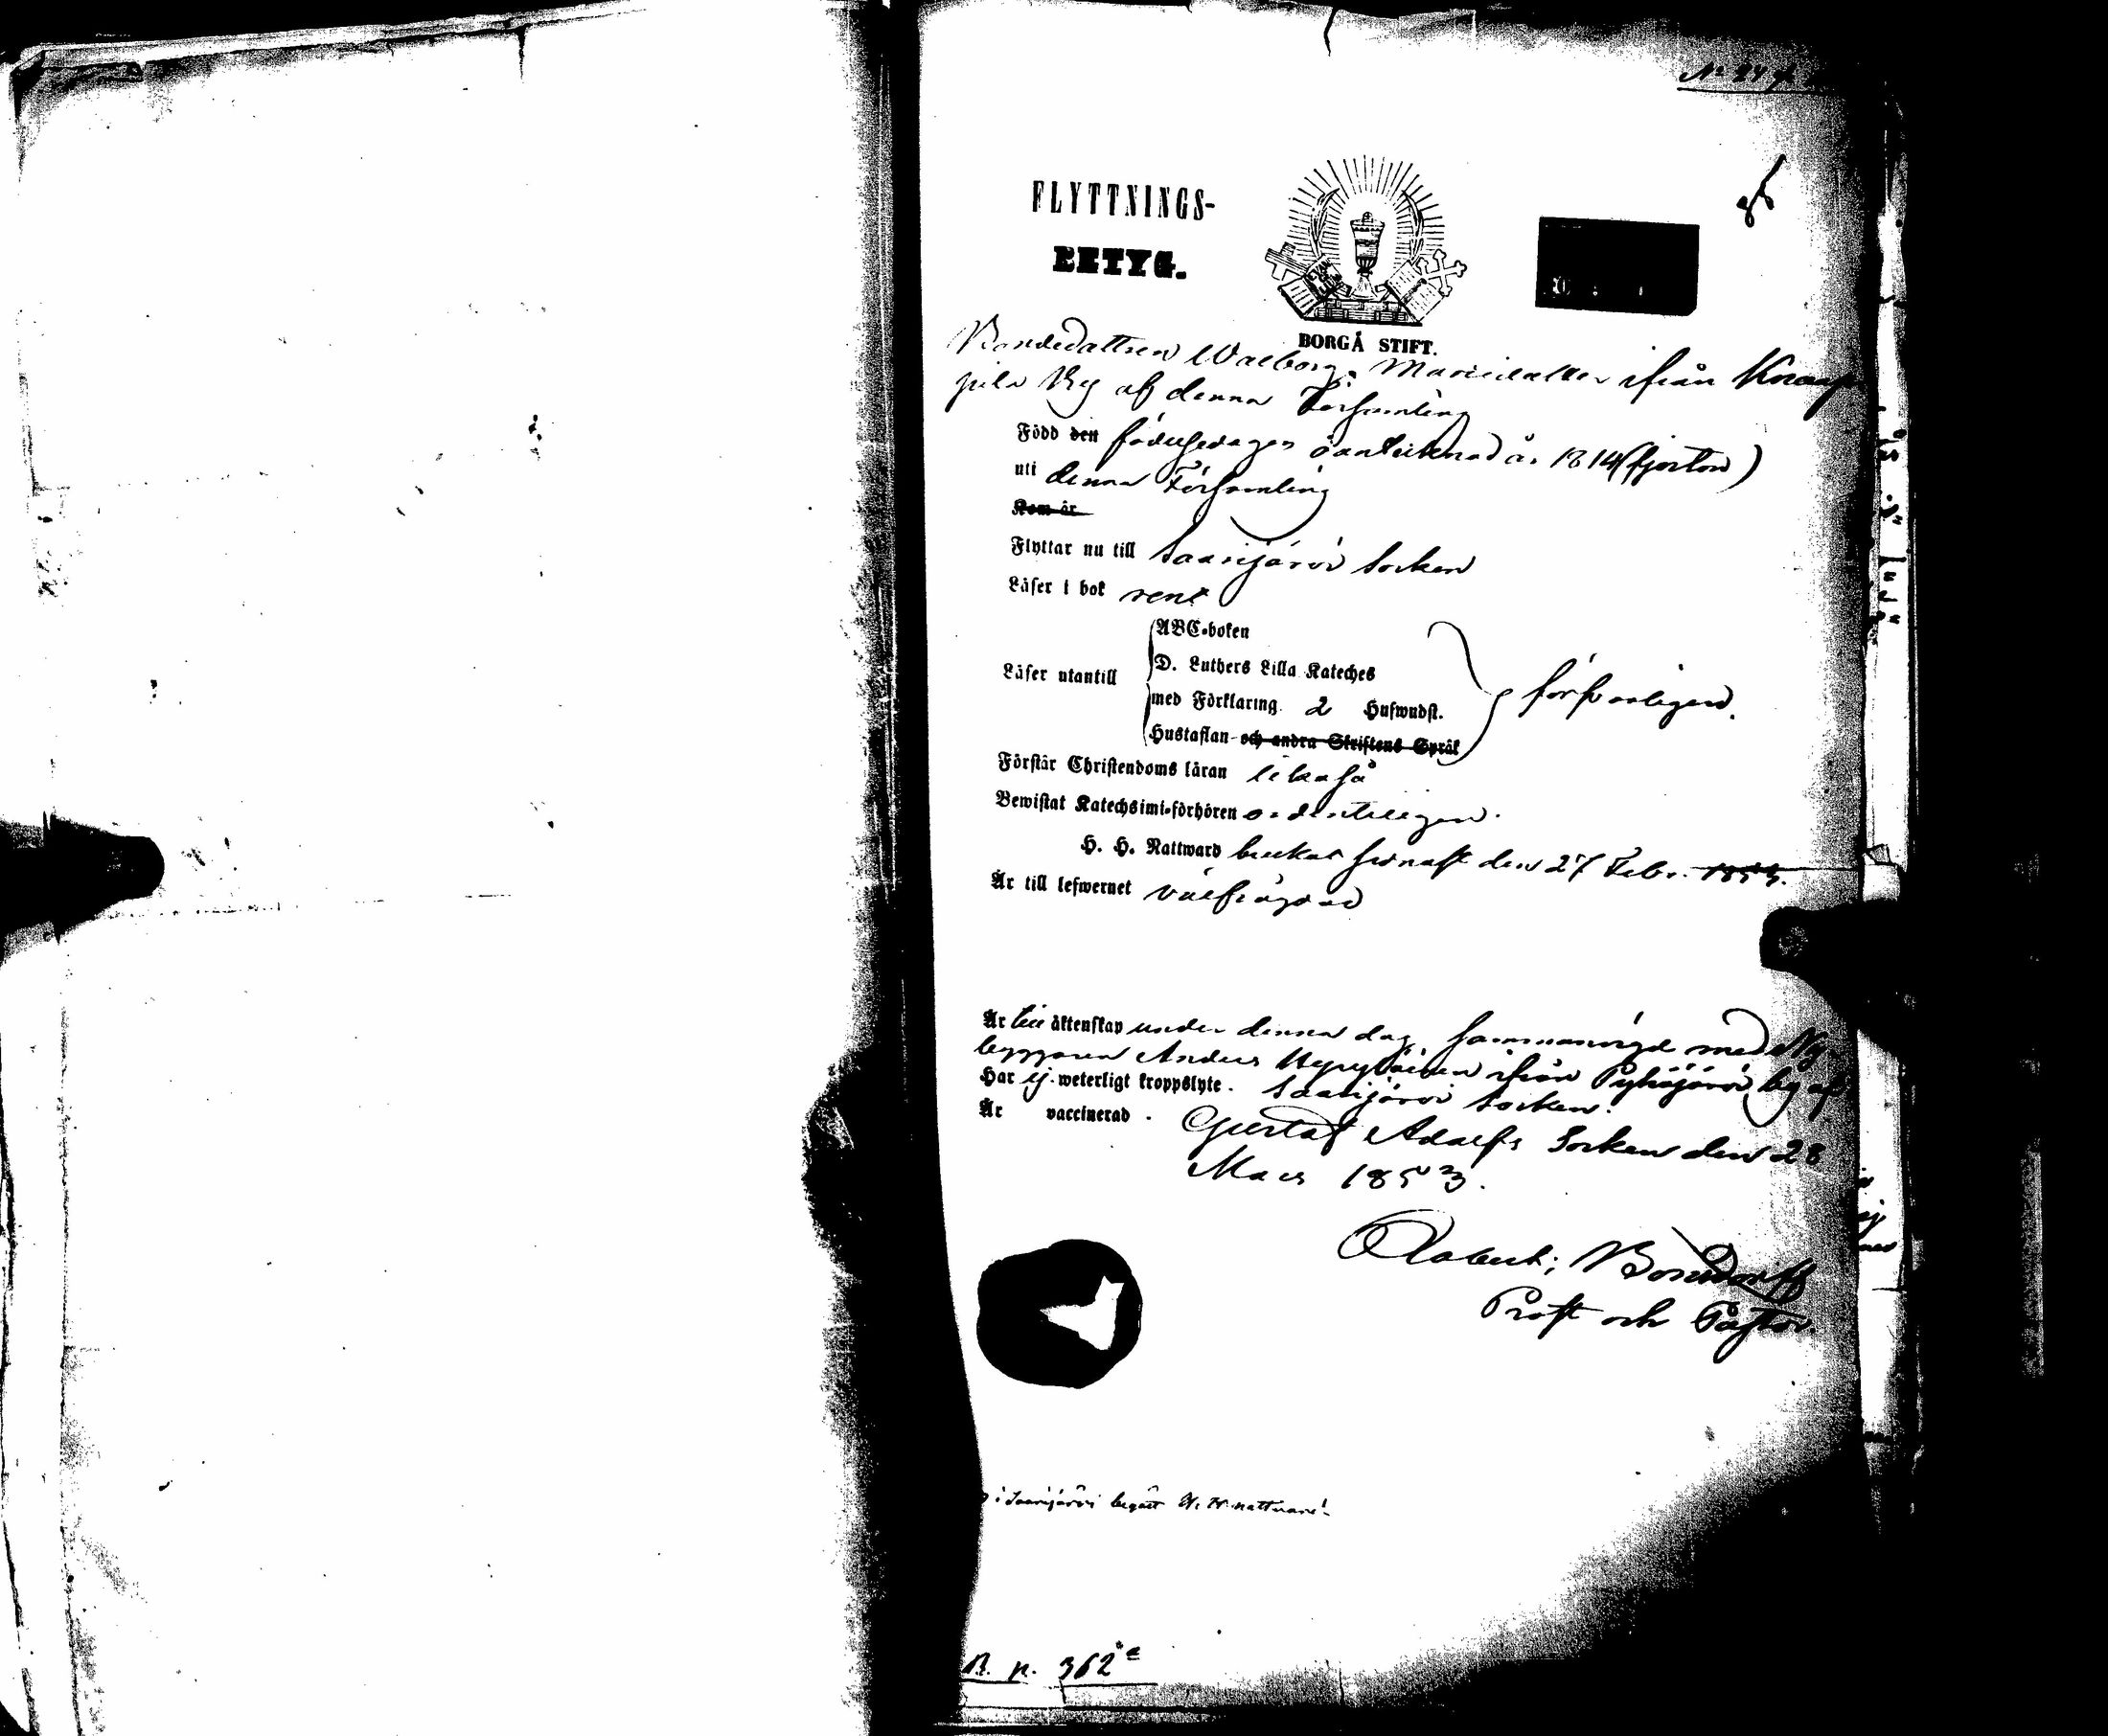 No 24
86
FLYTTNINGS-
BETYG.
BORGÅ STIFT.
Bondedottren Walborg Mariedotter ifrån Knaap
pila By af denna Församling
Född den födelsedagen oantecknad år 1814 (fjorton)
uti denna Församling
Kom år
Flyttar nu till Saarijärvi Socken
Läser i bok rent
Läser utantill
ABC-boken
D. Luthers Lilla Kateches
med Förklaring 2 Huswudst.
Hustaflan och andra Skriftens Språk
försvarligen.
Förstår Christendoms läran likaså
Bewistat Katechsimi-förhören ordentligen.
H. H. Nattward brukat sednast den 27 Febr. 1853.
Är till lefwernet välfräjdad
Är till äktenskap under denna dag sammanvigd med Ny-
byggaren Anders ifrån Pyhäjärvi by af
Har ej weterligt kroppslyte. Saarijärvi Socken.
Är vaccinerad.
Gustaf Adolfs Socken den 28
Mars 1853.
Robert; Bonsdorff
Prost och Pastor.
i Saarijärvi begått H. H. nattvard.
B. p. 362